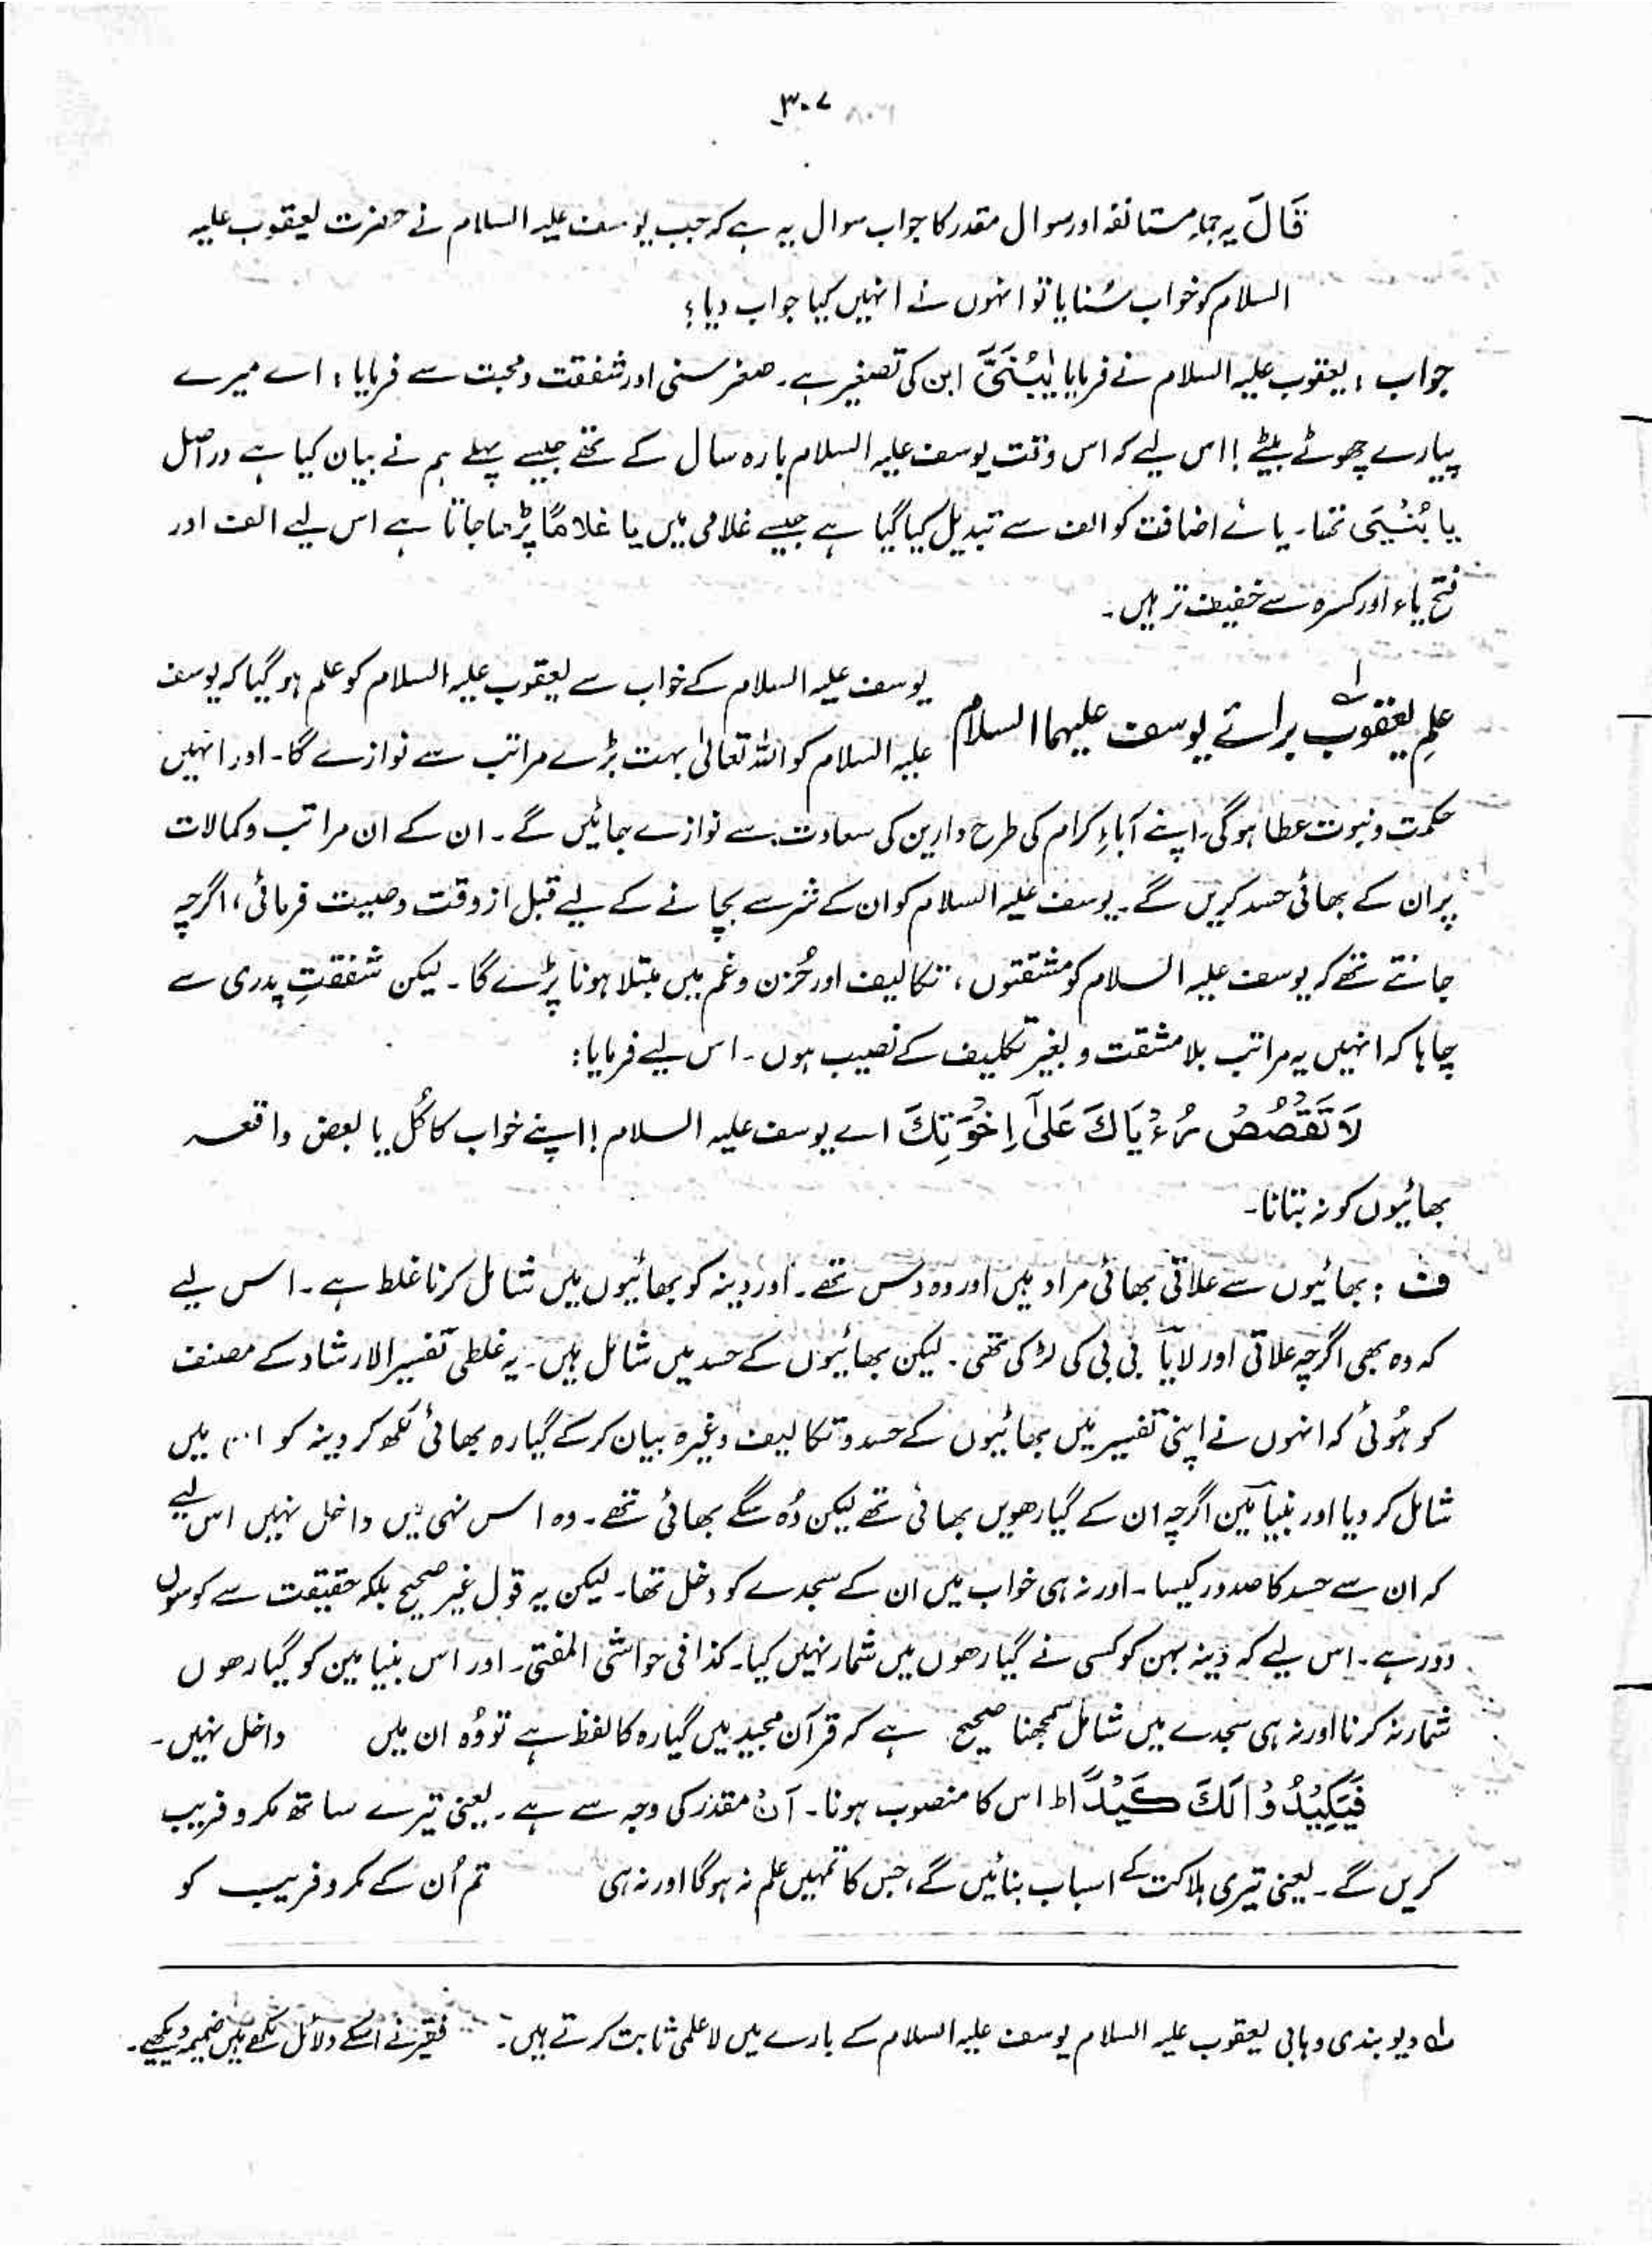 ۳۰۷
قَالَ یہ جملہ مستانفہ اور سوال مقدر کا جواب سوال یہ ہے کہ جب یوسف علیہ السلام نے حضرت یعقوب علیہ
السلام کو خواب سُنایا تو انہوں نے انہیں کیا جواب دیا؟
جواب : یعقوب علیہ السلام نے فرمایا یٰبُنَیَّ ابن کی تصغیر ہے۔ صغر سنی اور شفقت و محبت سے فرمایا : اے میرے
پیارے چھوٹے بیٹے ! اس لیے کہ اس وقت یوسف علیہ السلام بارہ سال کے تھے جیسے پہلے ہم نے بیان کیا ہے دراصل
یا بُنَیِّیَ تھا۔ یائے اضافت کو الف سے تبدیل کیا گیا ہے جیسے غلامی میں یا غلامًا پڑھا جاتا ہے اس لیے الف اور
فتح یاء اور کسرہ سے خفیف تر ہیں۔
علمِ یعقوب برائے یوسف علیہما السلام
یوسف علیہ السلام کے خواب سے یعقوب علیہ السلام کو علم ہو گیا کہ یوسف
علیہ السلام کو اللہ تعالیٰ بہت بڑے مراتب سے نوازے گا۔ اور انہیں
حکمت و نبوت عطا ہوگی۔ اپنے آباءِ کرام کی طرح دارین کی سعادت سے نوازے جائیں گے۔ ان کے ان مراتب و کمالات
پر ان کے بھائی حسد کریں گے۔ یوسف علیہ السلام کو ان کے شر سے بچانے کے لیے قبل از وقت وصیت فرمائی، اگرچہ
جانتے تھے کہ یوسف علیہ السلام کو مشقتوں، تکالیف اور حُزن و غم میں مبتلا ہونا پڑے گا۔ لیکن شفقتِ پدری سے
چاہا کہ انہیں یہ مراتب بلا مشقت و بغیر تکلیف کے نصیب ہوں۔ اس لیے فرمایا:
لَا تَقْصُصْ رُءْیَاكَ عَلٰٓى اِخْوَتِكَ اے یوسف علیہ السلام ! اپنے خواب کا کُل یا بعض واقعہ
بھائیوں کو نہ بتانا۔
ف : بھائیوں سے علاتی بھائی مراد ہیں اور وہ دس تھے۔ اور دینہ کو بھائیوں میں شامل کرنا غلط ہے۔ اس لیے
کہ وہ بھی اگرچہ علاتی اور لایّا بی بی کی لڑکی تھی۔ لیکن بھائیوں کے حسد میں شامل ہیں۔ یہ غلطی تفسیر الارشاد کے مصنف
کو ہُوئی کہ انہوں نے اپنی تفسیر میں بھائیوں کے حسد و تکالیف وغیرہ بیان کرکے گیارہ بھائی لکھ کر دینہ کو میں
شامل کر دیا اور بنیامین اگرچہ ان کے گیارھویں بھائی تھے لیکن وُہ سگے بھائی تھے۔ وہ اس نہی میں داخل نہیں اس لیے
کہ ان سے حسد کا صدور کیسا۔ اور نہ ہی خواب میں ان کے سجدے کو دخل تھا۔ لیکن یہ قول غیر صحیح بلکہ حقیقت سے کوسوں
دور ہے۔ اس لیے کہ دینہ بہن کو کسی نے گیارھوں میں شمار نہیں کیا۔ کذا فی حواشی المفتی۔ اور اس بنیامین کو گیارھوں
شمار نہ کرنا اور نہ ہی سجدے میں شامل سمجھنا صحیح ہے کہ قرآن مجید میں گیارہ کا لفظ ہے تو وُہ ان میں داخل نہیں۔
فَیَكِیْدُوْا لَكَ كَیْدًا ط اس کا منصوب ہونا۔ اَنْ مقدر کی وجہ سے ہے۔ یعنی تیرے ساتھ مکر و فریب
کریں گے۔ یعنی تیری ہلاکت کے اسباب بنائیں گے، جس کا تمہیں علم نہ ہوگا اور نہ ہی تم اُن کے مکر و فریب کو
ل دیوبندی وہابی یعقوب علیہ السلام یوسف علیہ السلام کے بارے میں لاعلمی ثابت کرتے ہیں۔ فقیر نے اسکے دلائل لکھے ہیں ضمیمہ دیکھیے۔